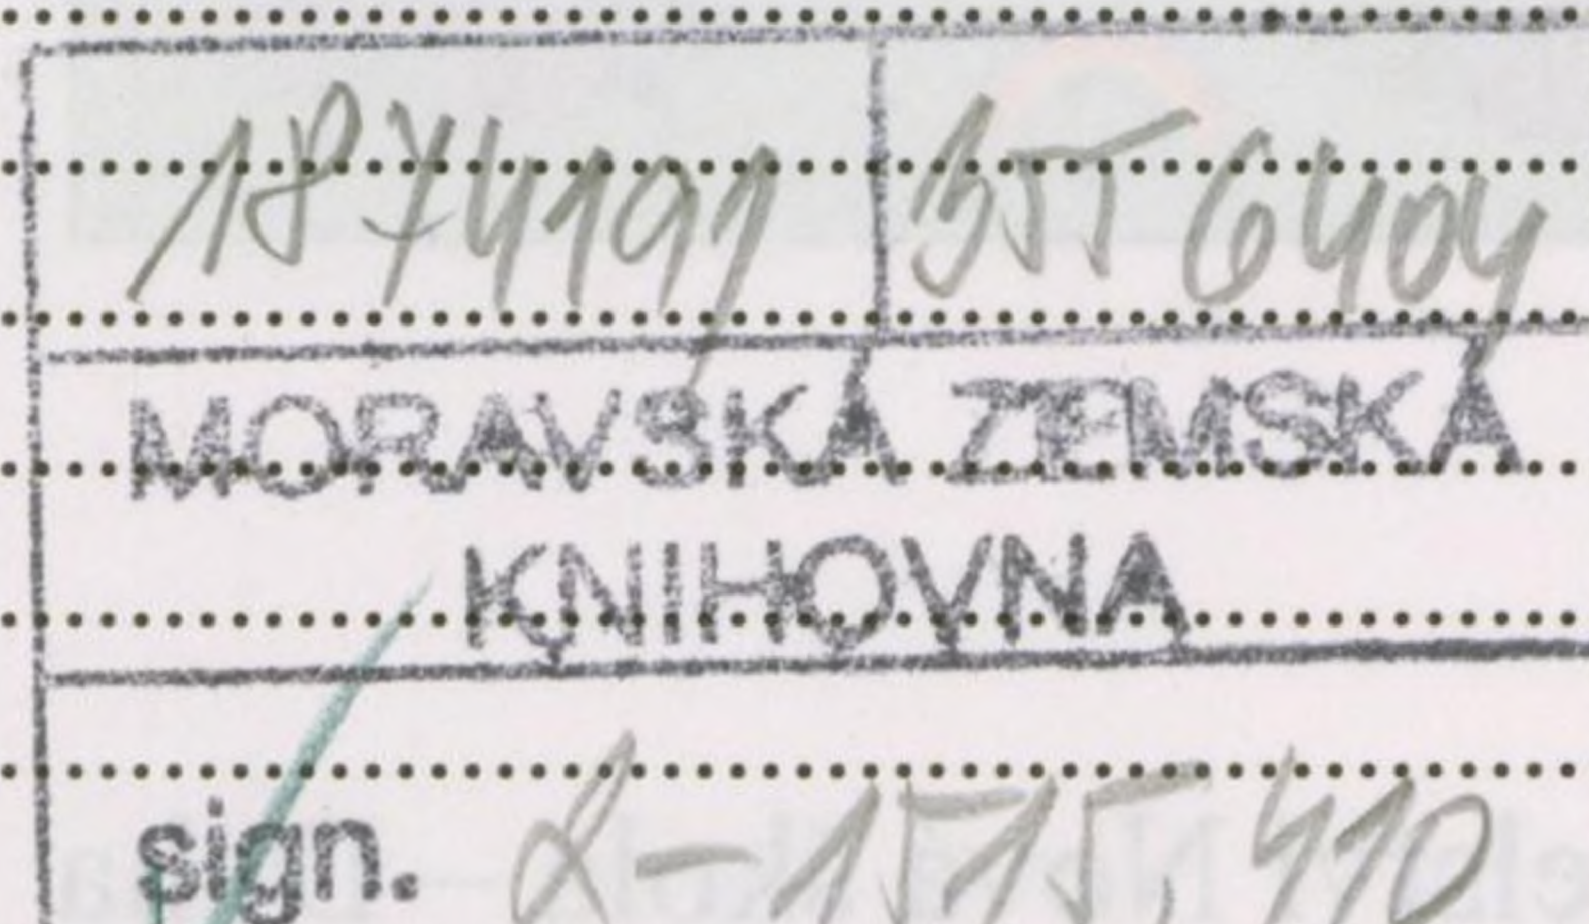 1874191 3556404
MORAVSKÁ ZEMSKÁ
KNIHOVNA
sign. 2-1515,410